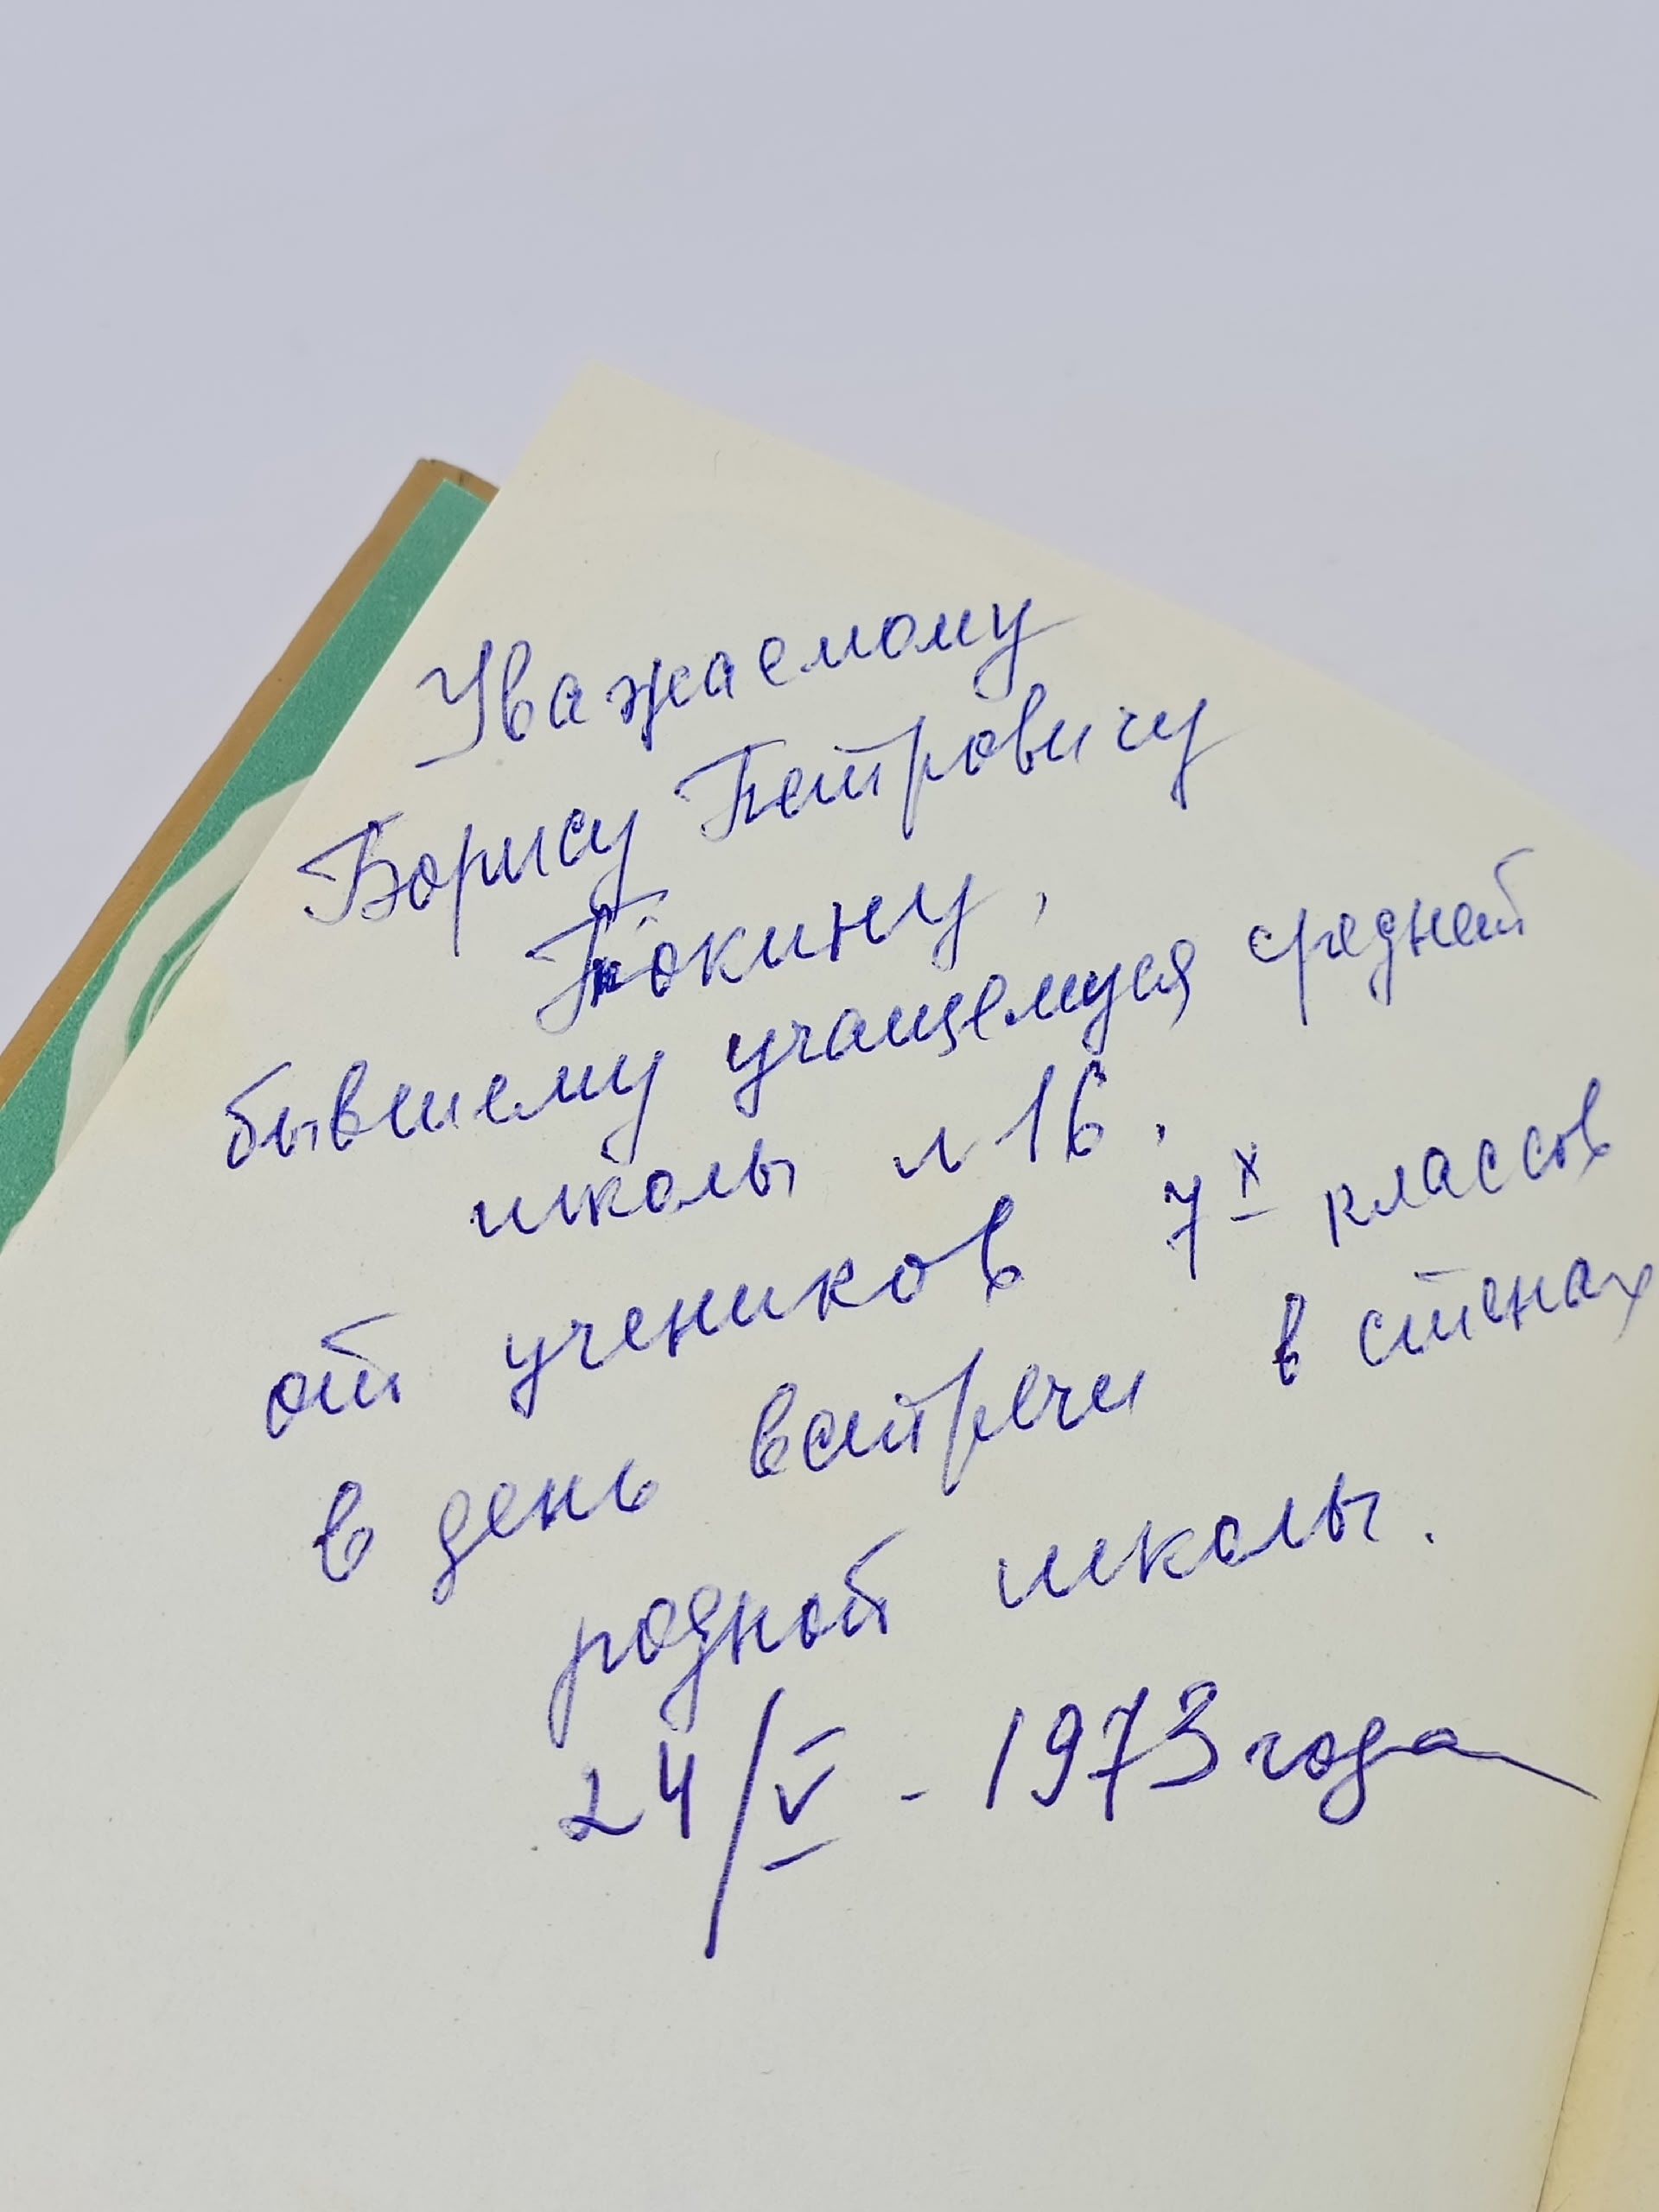 Уважаемому
Борису Петровичу
Токину,
бывшему учащемуся средней
школы № 16,
от учеников 7х классов
в день встречи в стенах
родной школы.
24/V - 1973 года